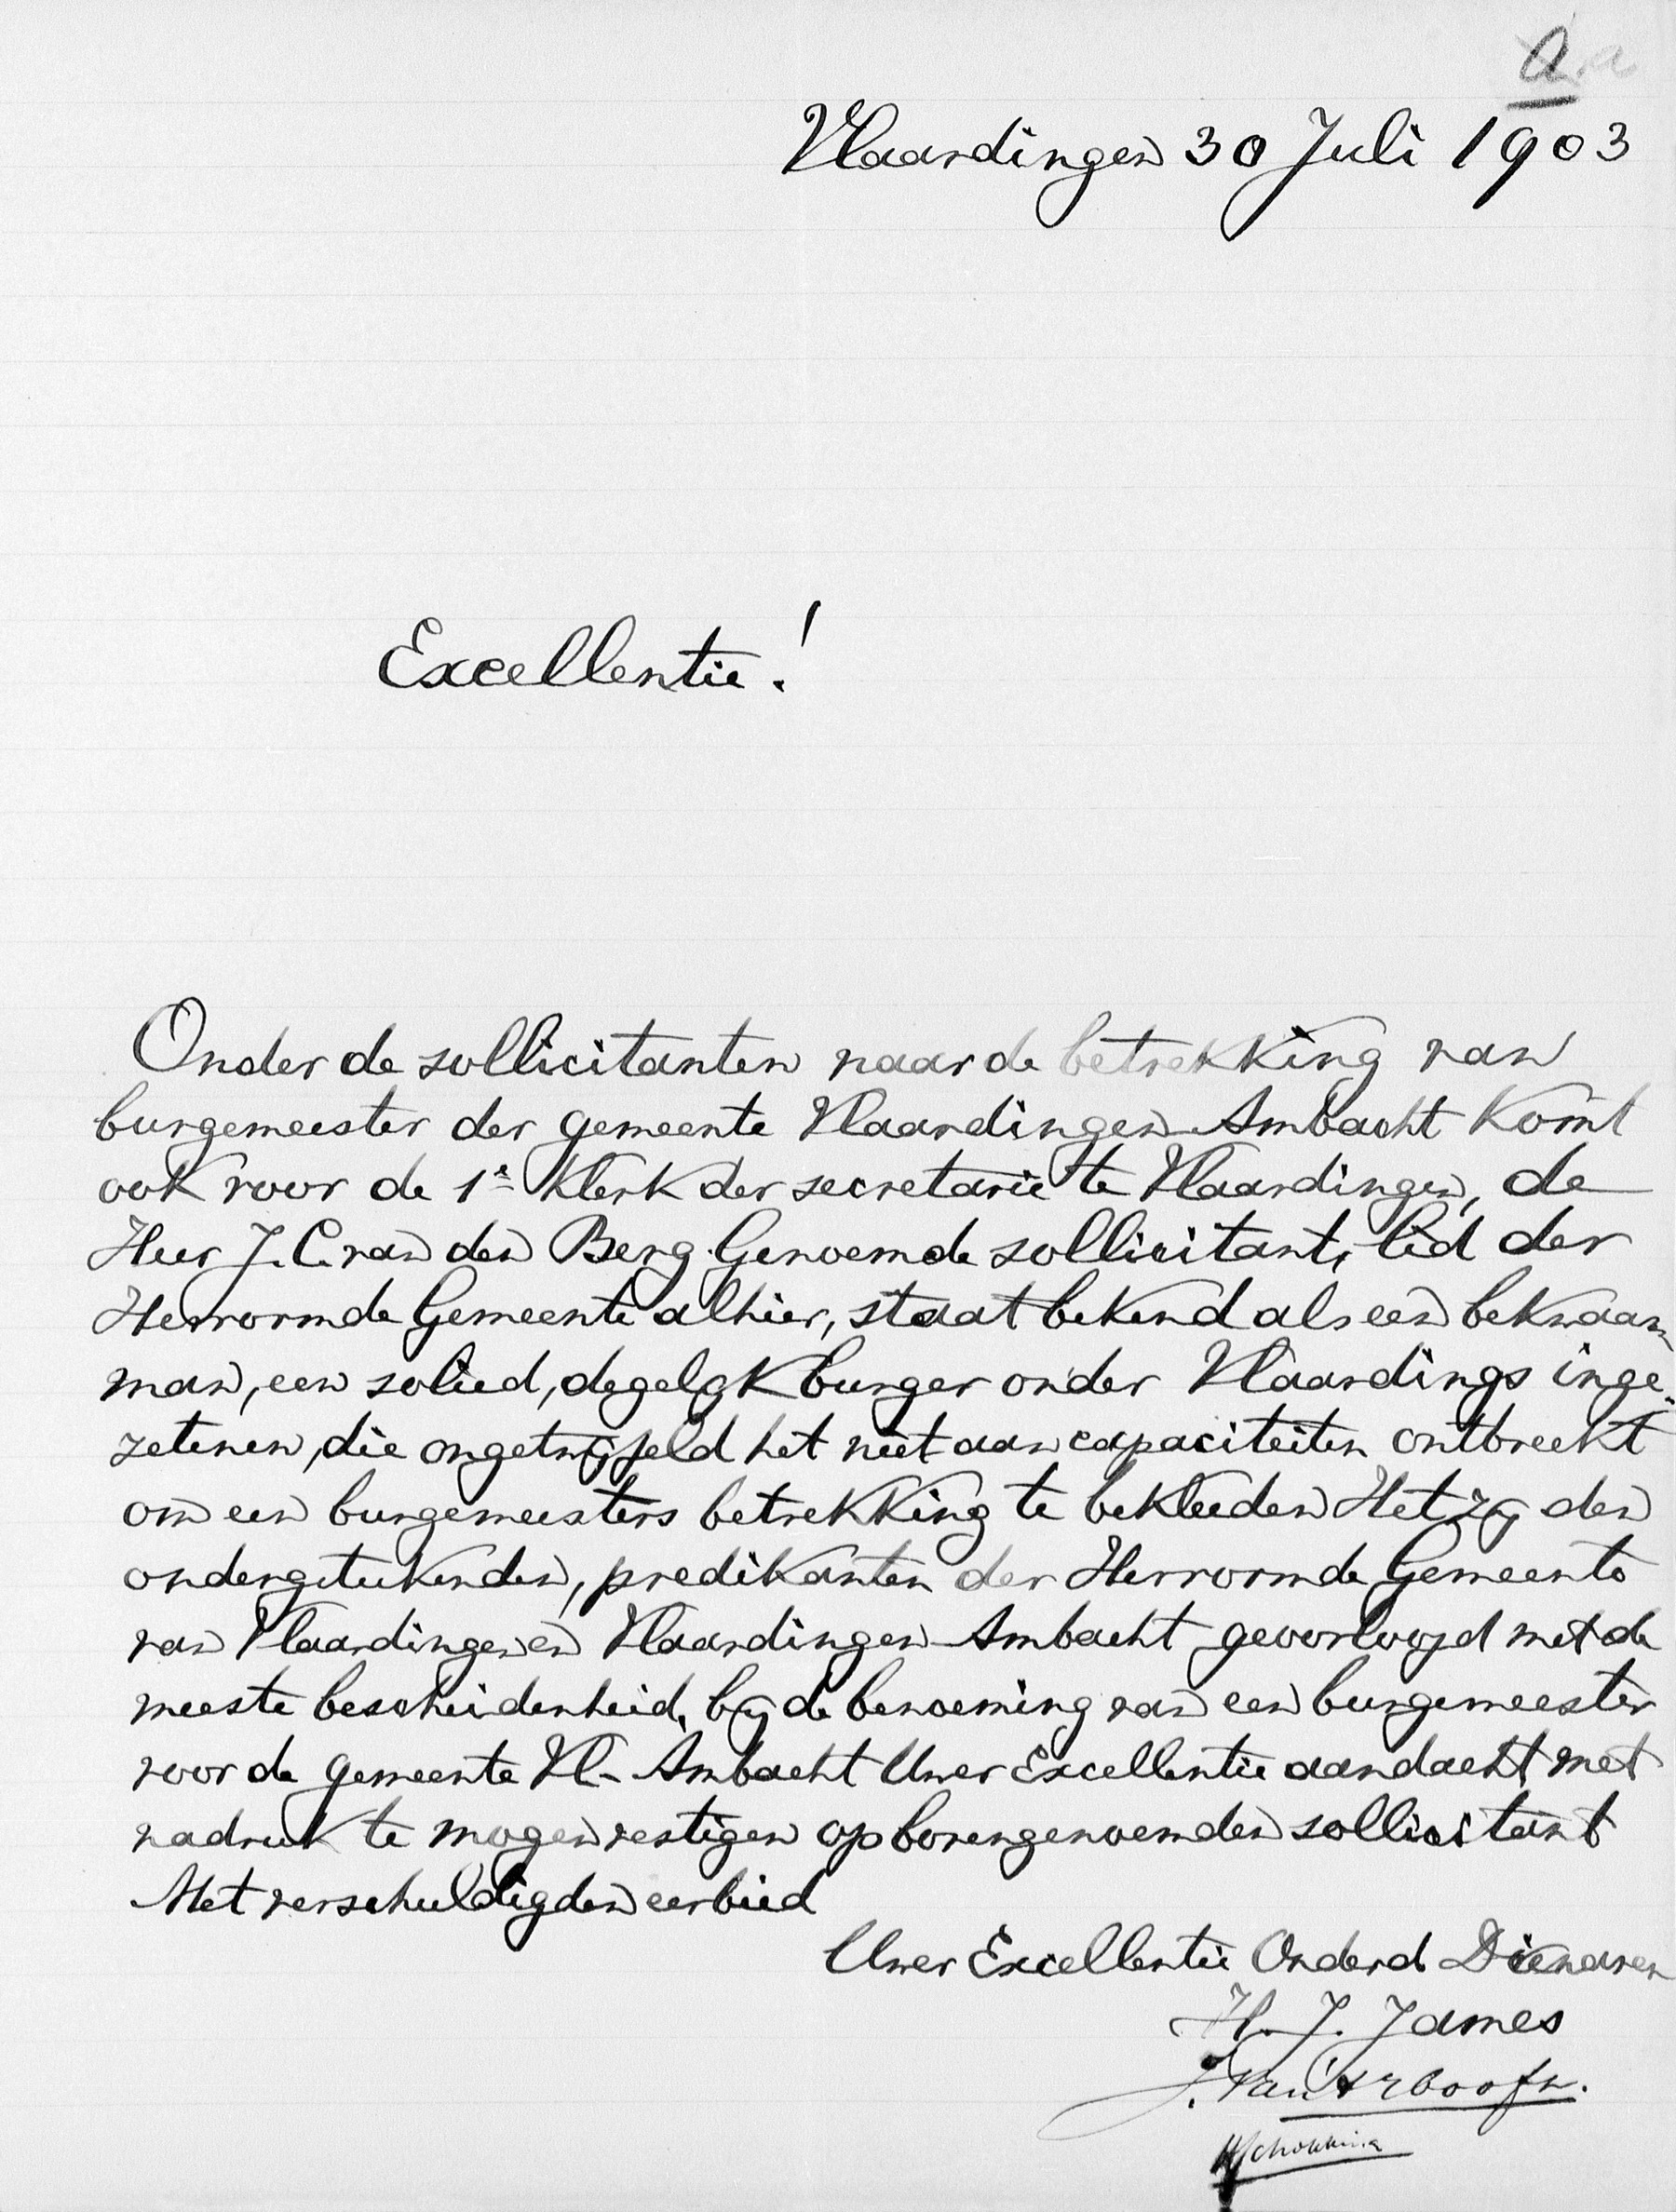 a
Vlaardingen 30 Juli 1903
Excellentie!
Onder de sollicitanten naar de betrekking van
burgemeester der gemeente Vlaardingen-Ambacht komt
ook voor de 1e Klerk der secretarie te Vlaardingen, de
Heer J. C. van den Berg. Genoemde sollicitant, lid der
Hervormde Gemeente alhier, staat bekend als een bekwaam
man, een solied, degelijk burger onder Vlaardings inge-
zetenen, die ongetwijfeld het niet aan capaciteiten ontbreekt
om een burgemeesters betrekking te bekleeden Het zij den
ondergeteekenden, predikanten der Hervormde Gemeente
van Vlaardingen en Vlaardingen Ambacht geoorloofd met de
meeste bescheidenheid, bij de benoeming van een burgemeester
voor de gemeente Vl- Ambacht Uwer Excellentie aandacht met
nadruk te mogen vestigen op bovengenoemden sollicitant
Met verschuldigden eerbied
Uwer Excellentie Onderd Dienaren
H. J. James
J. van
Schokking